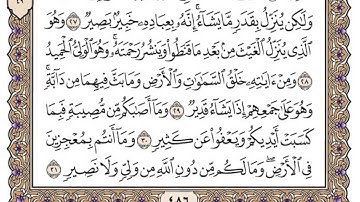 وَلَٰكِن يُنَزِّلُ بِقَدَرٍ مَّا يَشَآءُ ۚ إِنَّهُۥ بِعِبَادِهِۦ خَبِيرٌۢ بَصِيرٌ ٢٧ وَهُوَ
ٱلَّذِى يُنَزِّلُ ٱلْغَيْثَ مِنۢ بَعْدِ مَا قَنَطُوا۟ وَيَنشُرُ رَحْمَتَهُۥ ۚ وَهُوَ ٱلْوَلِىُّ ٱلْحَمِيدُ
٢٨ وَمِنْ ءَايَٰتِهِۦ خَلْقُ ٱلسَّمَٰوَٰتِ وَٱلْأَرْضِ وَمَا بَثَّ فِيهِمَا مِن دَآبَّةٍ ۚ
وَهُوَ عَلَىٰ جَمْعِهِمْ إِذَا يَشَآءُ قَدِيرٌ ٢٩ وَمَآ أَصَٰبَكُم مِّن مُّصِيبَةٍ فَبِمَا
كَسَبَتْ أَيْدِيكُمْ وَيَعْفُوا۟ عَن كَثِيرٍ ٣٠ وَمَآ أَنتُم بِمُعْجِزِينَ
فِى ٱلْأَرْضِ ۖ وَمَا لَكُم مِّن دُونِ ٱللَّهِ مِن وَلِىٍّ وَلَا نَصِيرٍ ٣١
٤٨٦